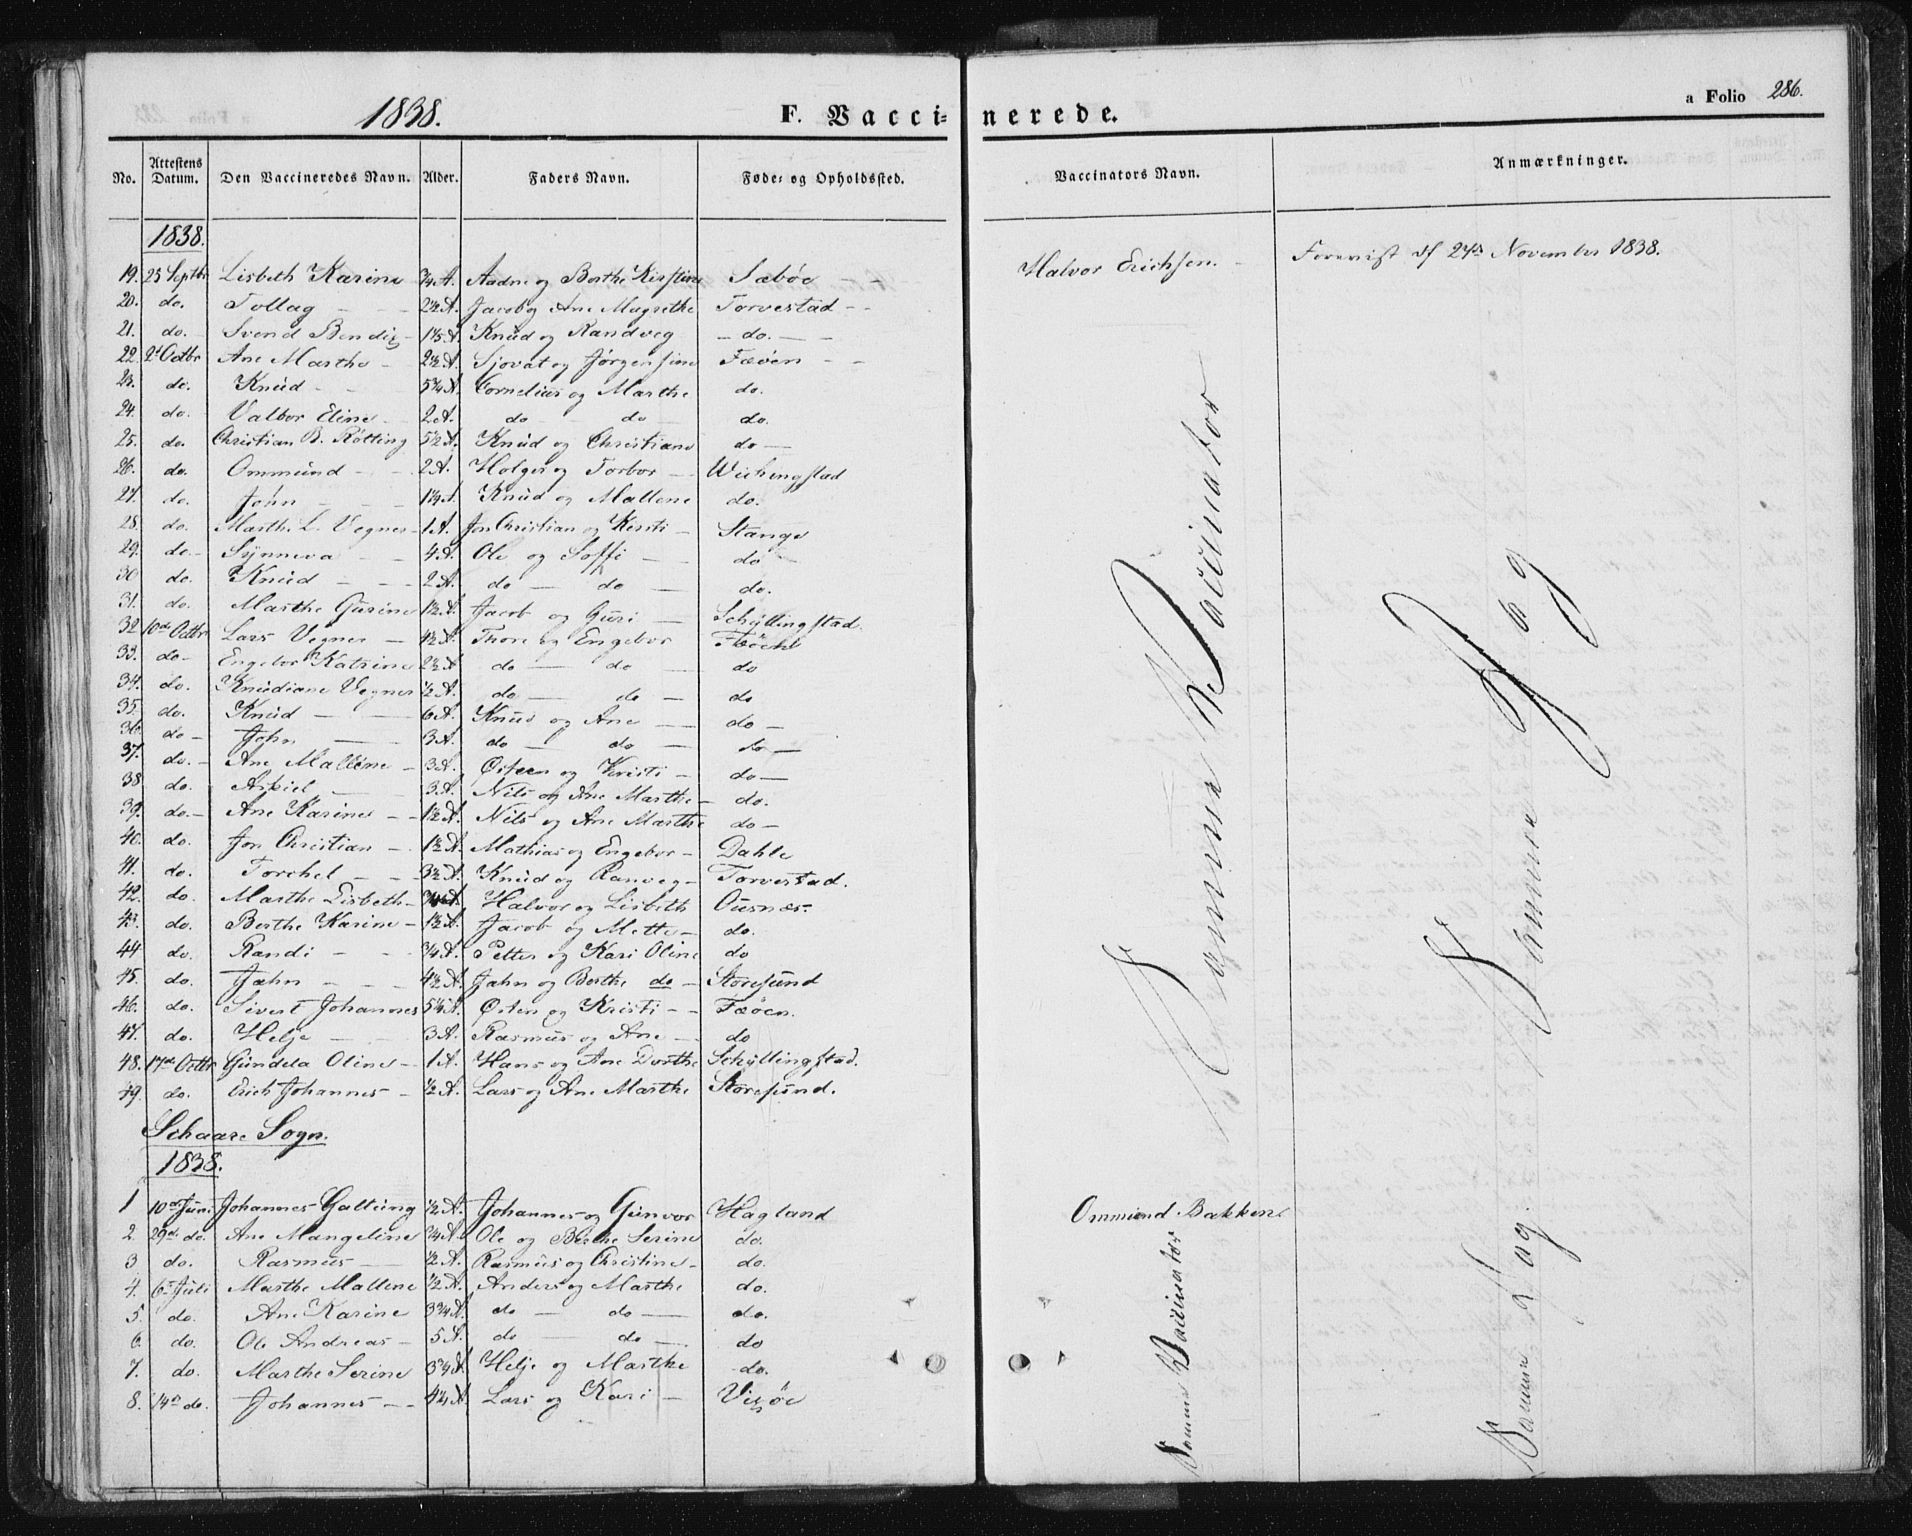 1838.
F. Vaccinerede.
a Folio 286.
No. Attestens Datum. Den Vaccineredes Navn. Alder. Faders Navn. Føde- og Opholdssted. Vaccinators Navn. Anmærkninger.
1838.
19. 25 Septbr Lisbeth Karine ¾ A. Aadne og Berthe Kirstine Sæbøe Halvor Erichsen. Foreviist df 24de November 1838.
20. do. Tollag 2½ A. Jacob og Ane Magrethe Torvestad
21. do. Svend Bendix 1½ A. Knud og Randveg do.
22. 2d Octbr Ane Marthe 2½ A. Sjovat og Jørgensine Fæøen
23. do. Knud 5¾ A. Cornelius og Marthe do.
24. do. Valbor Eline 2 A. do do do.
25. do. Christian B. Rötting 5½ A. Knud og Christiane do
26. do. Ommund 2 A. Holger og Torbor Wichingstad
27. do. John 1¼ A. Knud og Mallene do.
28. do. Marthe L. Vegner 1 A. Jon Christian og Kersti Stange
29. do. Synneva 4 A. Ole og Soffi do
30 do. Knud 2 A. do do do.
31. do. Marthe Gurine 1½ A. Jacob og Guri Schyllingstad.
32 10de Octbr Lars Vegner 4½ A. Thore og Engebor Fæöen
33. do Engebor Katrine 2½ A. do do do
34. do. Knudiane Vegner ½ A. do do do
35. do. Knud 6 A. Knud og Ane do
36. do John 3 A. do do do
37. do. Ane Mallene 3 A. Östeen og Kristi do
38 do. Askiel 3 A. Nils og Ane Marthe do.
39. do. Ane Karine 1½ A. Nils og Ane Marthe do
40. do. Jon Christian 1½ A. Mathias og Engebor Dahle
41. do. Torchel 3½ A. Knud og Ranveg Torvestad.
42. do. Marthe Lisbeth Halvor og Lisbeth Ousnæs.
43. do. Berthe Karine 1½ A. Jacob og Mette do.
44 do. Randi ¾ A. Petter og Kari Oline do
45. do. Jahn 4½ A. Jahn og Berthe do Storesund
46. do. Sivert Johannes 5¼ A. Østen og Kristi Fæöen.
47. do. Helje 3 A. Rasmus og Ane do
48. 17de Octbr Gundela Oline 1 A. Hans og Ane Dorthe Schyllingstad.
49. do. Erich Johannes ½ A. Lars og Ane Marthe Storesund.
Samme Vaccinator
Samme Dag
Schaare Sogn.
1838.
1 10de Juni Johannes Galtung ½ A. Johannes og Gunvor Hagland Ommund Bakken
2. 29de do. Ane Mangeline ¾ A. Ole og Berthe Serine do.
3 do. Rasmus ½ A. Rasmus og Christine do.
4. 6te Juli Marthe Mallene ½ A. Anders og Marthe do.
5. do. Ane Karine 3¾ A. do do do.
6. do. Ole Andreas 5 A. do do do
7. do. Marthe Serine 3¾ A. Helje og Marthe do.
8. 14de do. Johannes 4¼ A. Lars og Kari Visöe
Samme Vaccinator
Samme Dag.